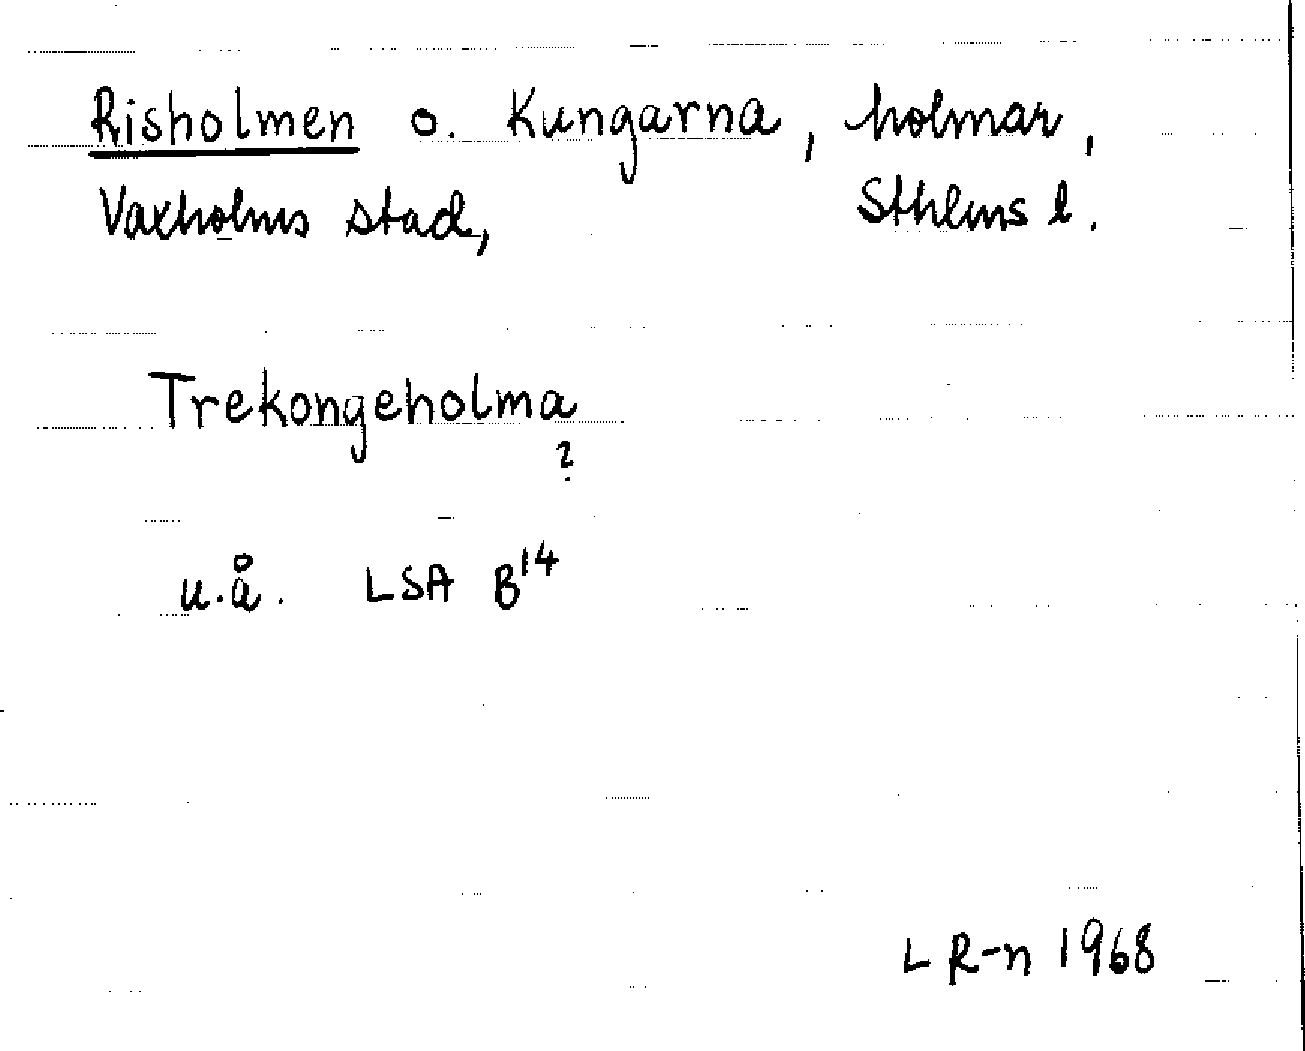 Risholmen o. Kungarna, holmar,
Vaxholms stad, Sthlms l.
Trekongeholma
?
u.å. LSA B14
L R-n 1968